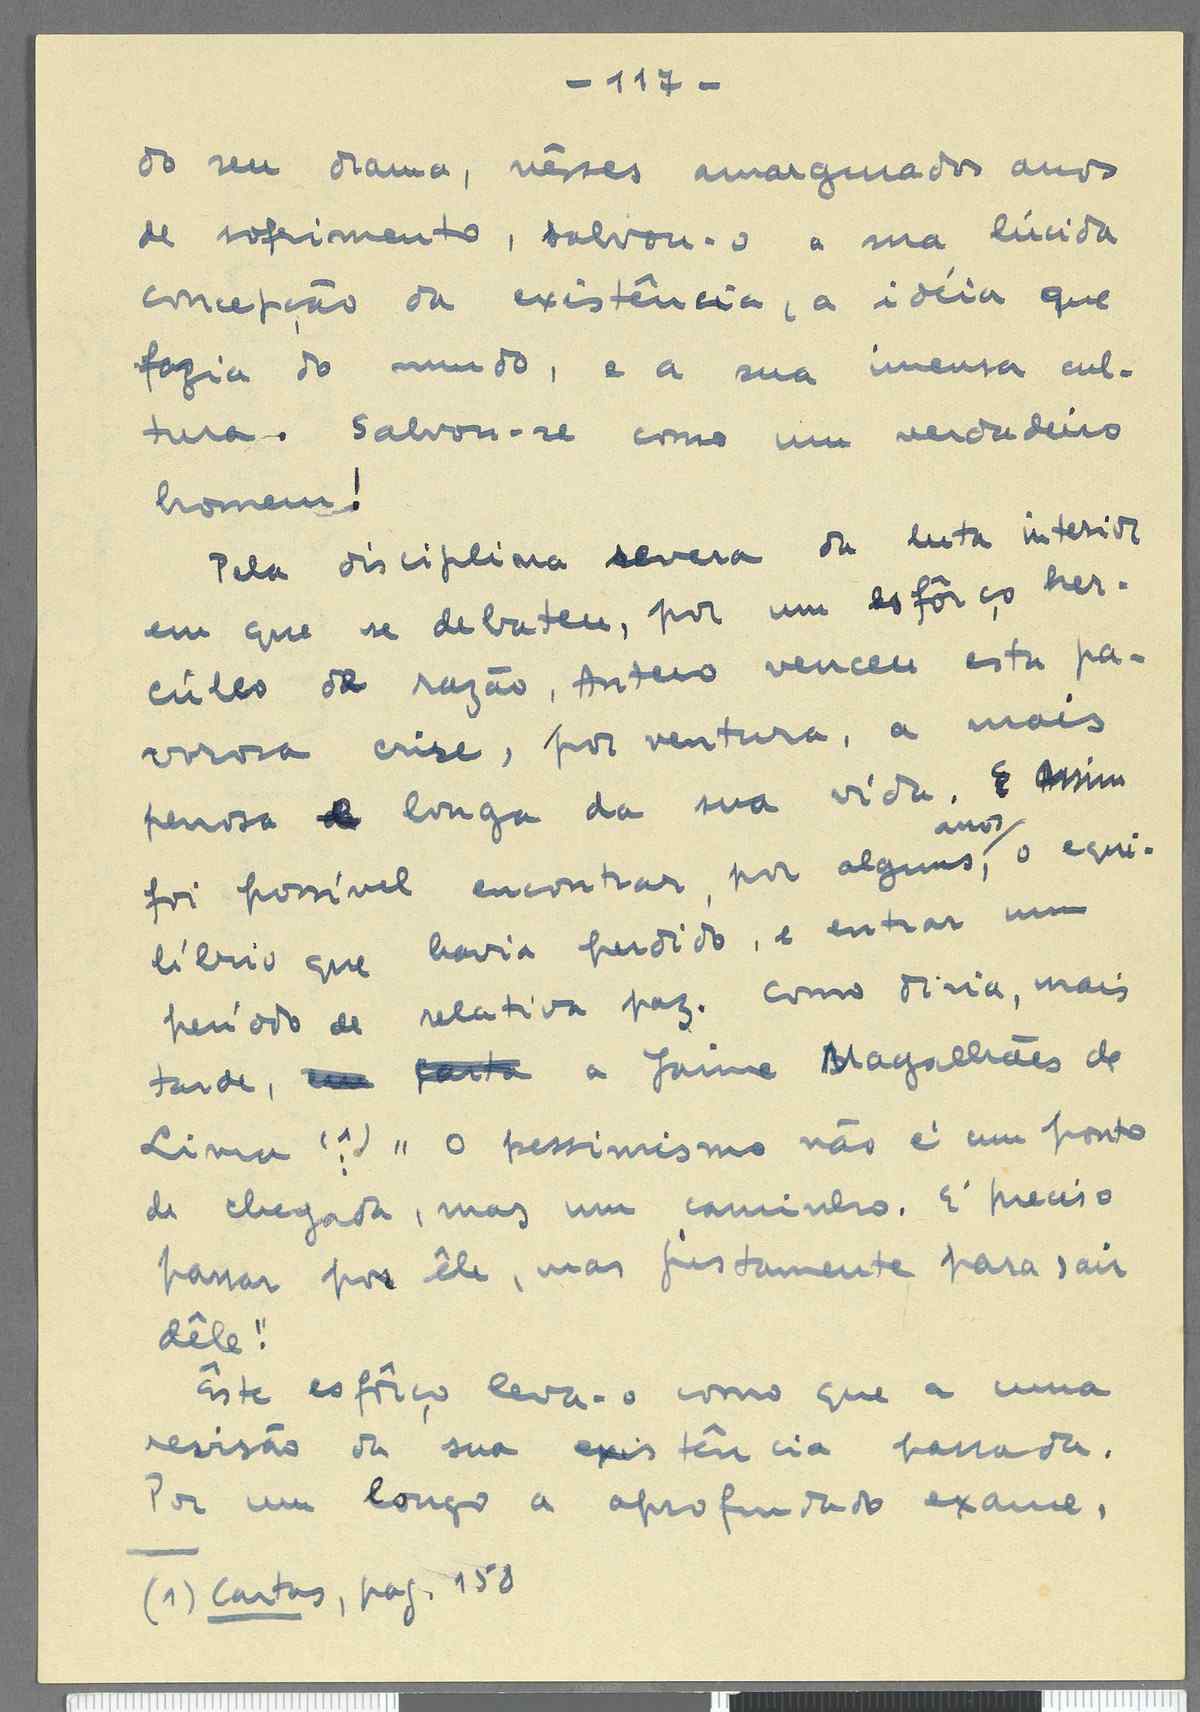 - 117 -
do seu drama, nêsses amargurados anos
de sofrimento, salvou-o a sua lúcida
concepção da existência, a idéia que
fazia do mundo, e a sua imensa cul-
tura. Salvou-se como um verdadeiro
homem!
Pela disciplina severa da luta interior
em que se debateu, por um esfôrço her-
cúleo da razão, Antero venceu esta pa-
vorosa crise, por ventura, a mais
penosa e longa da sua vida. E assim
foi possível encontrar, por alguns anos, o equi-
líbrio que havia perdido, e entrar num
período de relativa paz. Como diria, mais
tarde, em carta a Jaime Magalhães de
Lima (1) " O pessimismo não é um ponto
de chegada, mas um caminho. É preciso
passar por êle, mas justamente para sair
dêle!"
Êste esfôrço leva-o como que a uma
revisão da sua existência passada.
Por um longo a aprofundado exame,
(1) Cartas, pag. 158